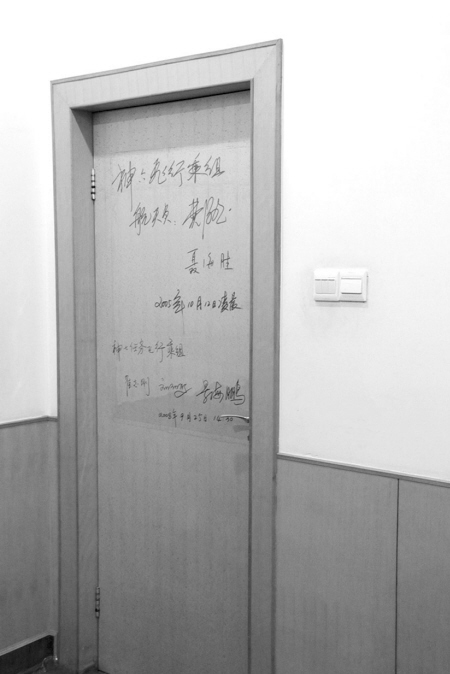 神六飞行乘组
航天员：费俊龙
聂海胜
2005年10月12日凌晨
神七任务飞行乘组
翟志刚 景海鹏
2008年9月25日